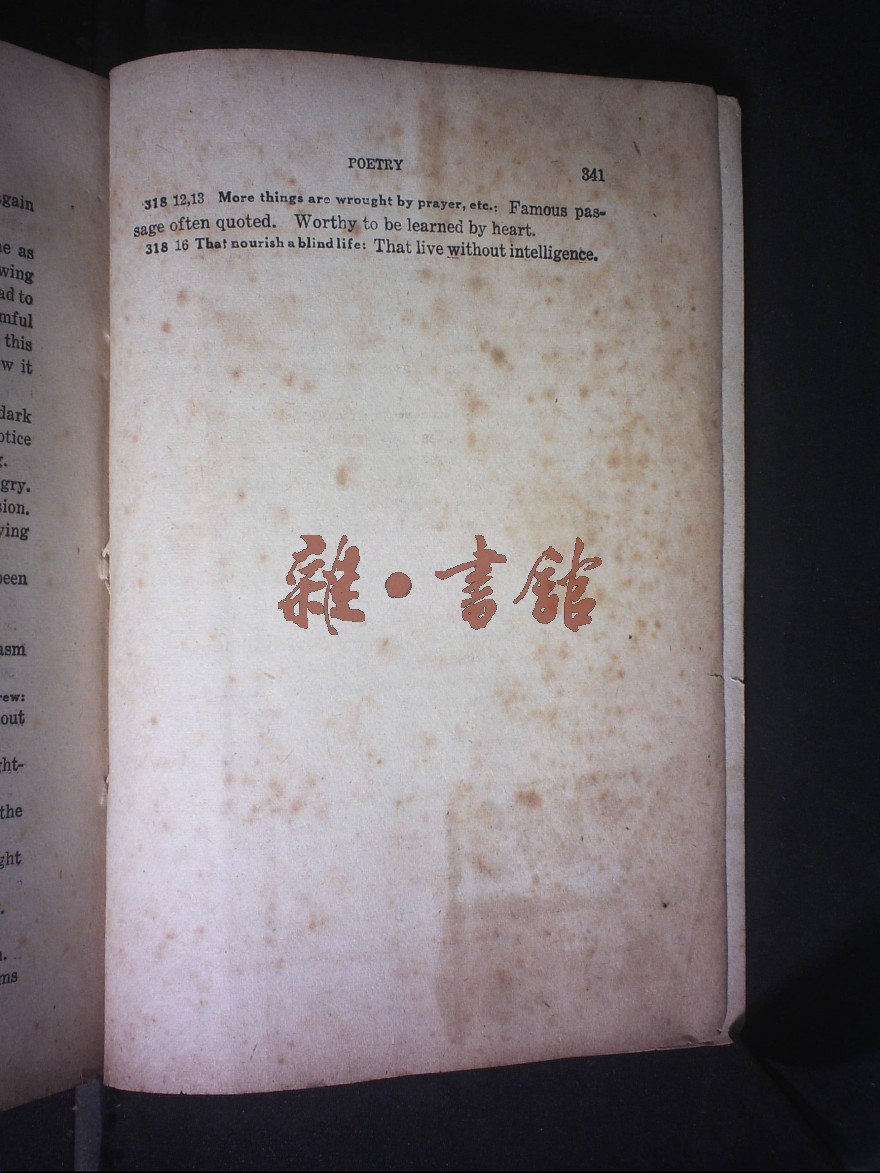 gain
e as
wing
ad to
mful
this
w it
dark
otice
gry.
sion.
ying
been
asm
rew:
out
ht-
the
ght
ms
POETRY 341
318 12,13 More things are wrought by prayer, etc.: Famous pas-
sage often quoted. Worthy to be learned by heart.
318 16 That nourish a blind life: That live without intelligence.
雜·書館